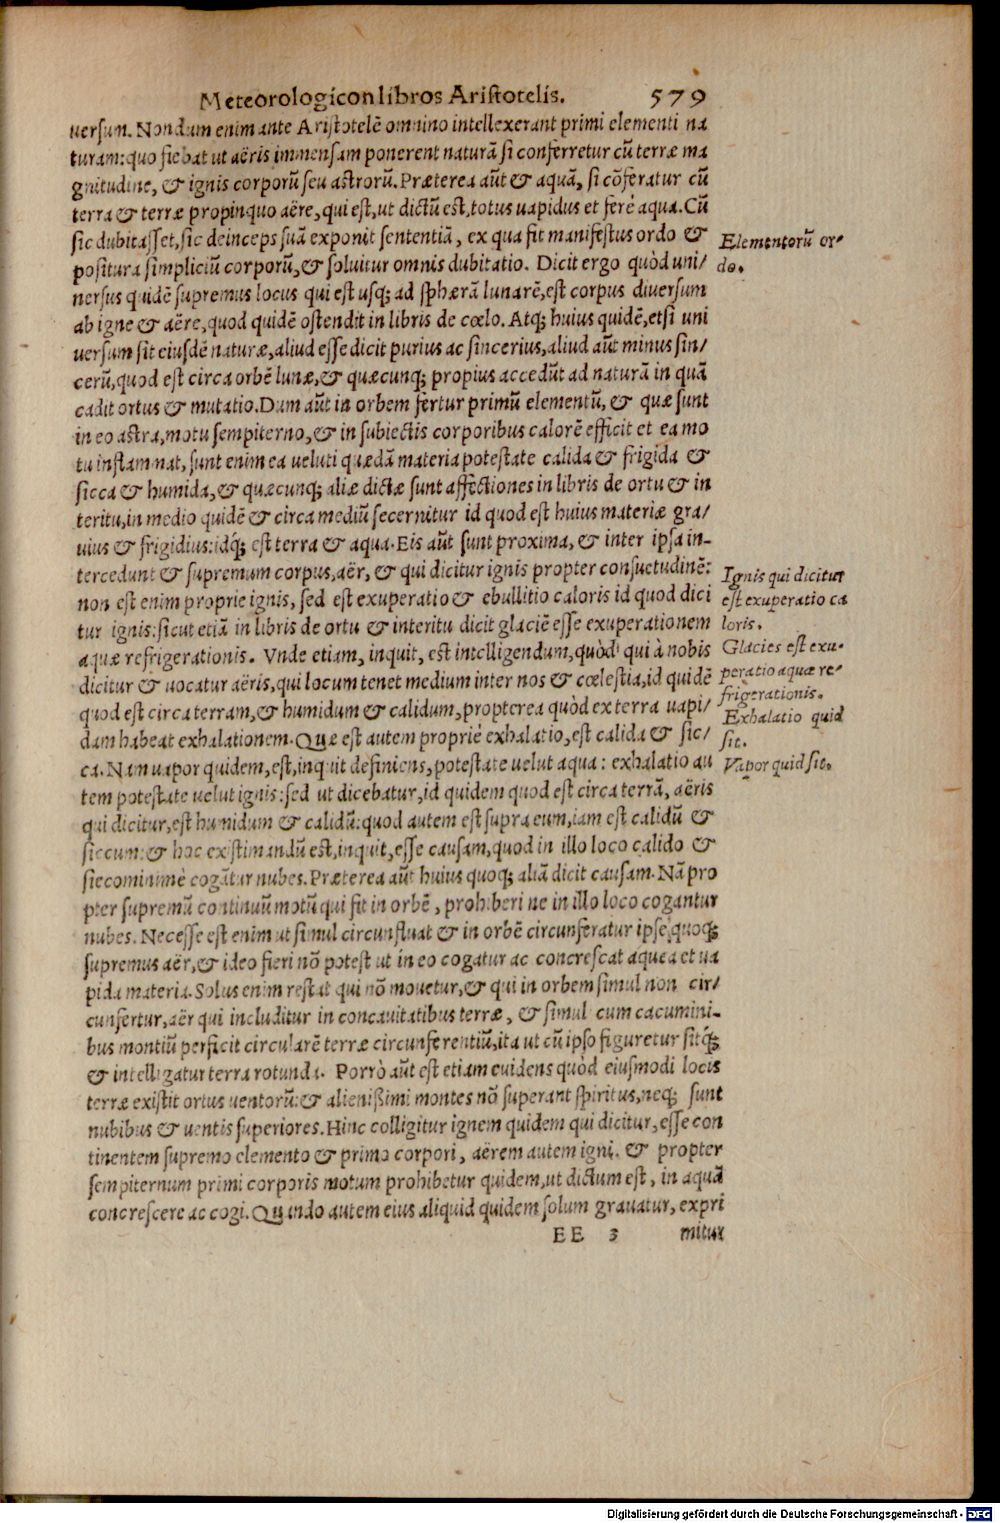 Meteorologicon libros Aristotelis. 579
uersum. Nondum enim ante Aristotelē omnino intellexerant primi elementi na
turam: quo fiebat ut aëris immensam ponerent naturā si conferretur cū terræ ma
gnitudine, & ignis corporū seu astrorū. Præterea aūt & aquā, si cōferatur cū
terra & terræ propinquo aëre, qui est, ut dictū est, totus uapidus et ferè aqua. Cū
sic dubitasset, sic deinceps suā exponit sententiā, ex qua fit manifestus ordo &
positura simpliciū corporū, & soluitur omnis dubitatio. Dicit ergo quòd uni/
uersus quidē supremus locus qui est usq; ad sphærā lunarē, est corpus diuersum
ab igne & aëre, quod quidē ostendit in libris de cœlo. Atq; huius quidē, etsi uni
uersum sit eiusdē naturæ, aliud esse dicit purius ac sincerius, aliud aūt minus sin/
cerū, quod est circa orbē lunæ, & quæcunq; propius accedūt ad naturā in quā
cadit ortus & mutatio. Dum aūt in orbem fertur primū elementū, & quæ sunt
in eo astra, motu sempiterno, & in subiectis corporibus calorē efficit et ea mo
tu inflammat, sunt enim ea ueluti quædā materia potestate calida & frigida &
sicca & humida, & quæcunq; aliæ dictæ sunt affectiones in libris de ortu & in
teritu, in medio quidē & circa mediū secernitur id quod est huius materiæ gra/
uius & frigidius: idq́; est terra & aqua. Eis aūt sunt proxima, & inter ipsa in-
tercedunt & supremum corpus, aër, & qui dicitur ignis propter consuetudinē:
non est enim proprie ignis, sed est exuperatio & ebullitio caloris id quod dici
tur ignis: sicut etiā in libris de ortu & interitu dicit glaciē esse exuperationem
aquæ refrigerationis. Vnde etiam, inquit, est intelligendum, quòd qui à nobis
dicitur & uocatur aëris, qui locum tenet medium inter nos & cœlestia, id quidē
quod est circa terram, & humidum & calidum, propterea quòd ex terra uapi/
dam habeat exhalationem. Quæ est autem propriè exhalatio, est calida & sic/
ca. Nam uapor quidem, est, inquit definiens, potestate uelut aqua: exhalatio au
tem potestate uelut ignis: sed ut dicebatur, id quidem quod est circa terrā, aëris
qui dicitur, est humidum & calidū: quod autem est supra eum, iam est calidū &
siccum: & hac existimandū est, inquit, esse causam, quod in illo loco calido &
sicco minimè cogātur nubes. Præterea aūt huius quoq; aliā dicit causam. Nā pro
pter supremā continuū motū qui fit in orbē, prohiberi ne in illo loco cogantur
nubes. Necesse est enim ut simul circunfluat & in orbē circunferatur ipse quoq;
supremus aër, & ideo fieri nō potest ut in eo cogatur ac concrescat aquea et ua
pida materia. Solus enim restat qui nō mouetur, & qui in orbem simul non cir/
cunfertur, aër qui includitur in concauitatibus terræ, & simul cum cacumini-
bus montiū perficit circularē terræ circunferentiū, ita ut cū ipso figuretur sitq́;
& intelligatur terra rotunda. Porrò aūt est etiam euidens quòd eiusmodi locis
terræ existit ortus uentorū: & alienißimi montes nō superant spiritus, neq; sunt
nubibus & uentis superiores. Hinc colligitur ignem quidem qui dicitur, esse con
tinentem supremo elemento & primo corpori, aërem autem igni. & propter
sempiternum primi corporis motum prohibetur quidem, ut dictum est, in aquā
concrescere ac cogi. Quando autem eius aliquid quidem solum grauatur, expri
EE 3 mitur
Elementorū or-
do.
Ignis qui dicitur
est exuperatio ca
loris.
Glacies est exu-
peratio aquæ re-
frigerationis.
Exhalatio quid
sit.
Vapor quid sit.
Digitalisierung gefördert durch die Deutsche Forschungsgemeinschaft - DFG